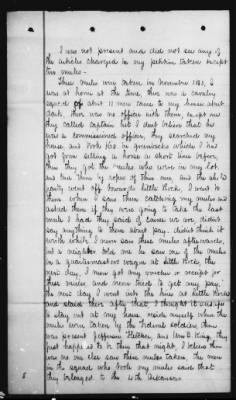 I was not present and did not see any of
the articles charged in my petition taken except
two mules -
These mules were taken in November 1863, I
was at home at the time, there was a cavalry
squad of about 11 men came to my house about
dark, there was no officer with them, except one
they called captain but I dont believe that he
was a commissioned officer, they searched my
house, and took $60 in greenbacks which I had
got from selling a horse a short time before,
then they got the mules who were in my lot
and one them by ropes of their own, and the whole
party went off towards Little Rock, I went to
them when I saw them catching my mules and
asked them if they were going to take the last
mule I had they said of course we are, didnt
say anything to them about pay, didnt think it
worth while, I never saw these mules afterwards,
but a neighbor told me he saw one of the mules
in a quartermasters wagon at Little Rock, the
next day, I never got any voucher or receipt for
these mules and never tried to get any pay,
the next day I went into the lines at Little Rock
and staid there after that, I thought it unsafe
to stay out at my house, beside myself when the
mules were taken by the Federal soldiers, there
was present Jefferson and Wm B King, they
just happened to be there that night, I believe there
was no one else saw these mules taken, the men
in the squad who took my mules said that
they belonged to the 4th Arkansas